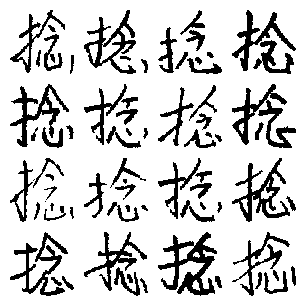 捻捻捻捻
捻捻捻捻
捻捻捻捻
捻捻捻捻